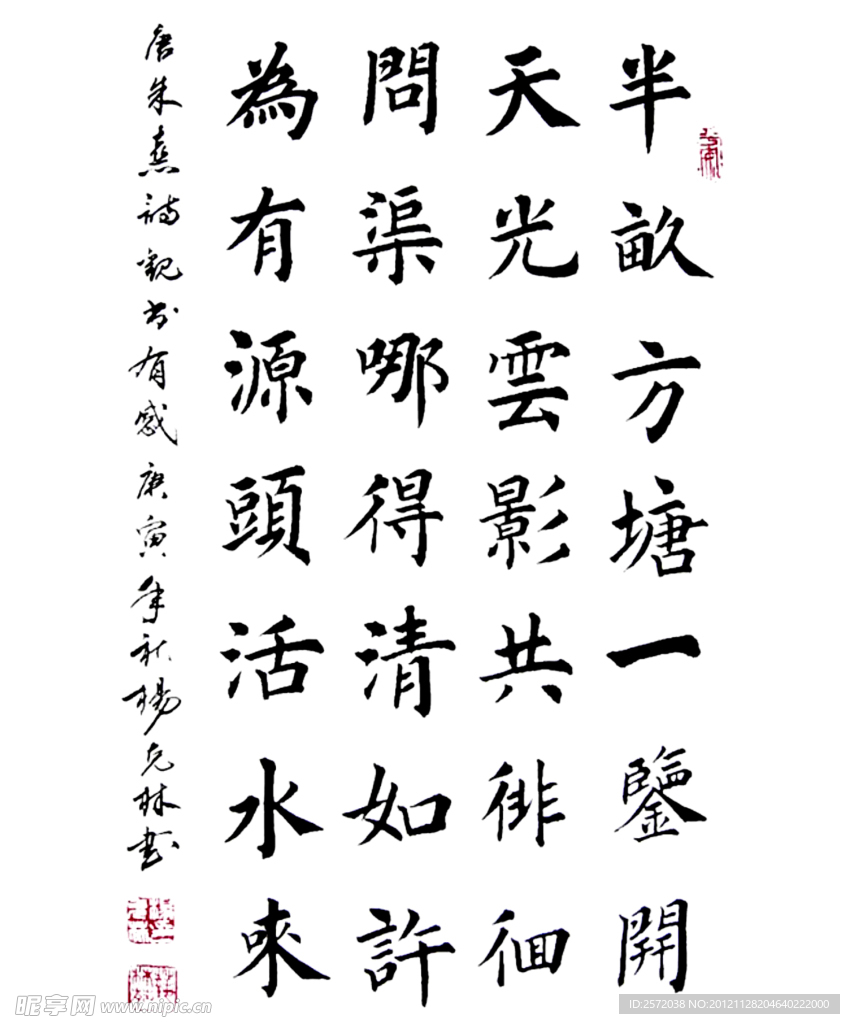 半畝方塘一鑒開
天光雲影共徘徊
問渠哪得清如許
為有源頭活水來
唐朱熹詩觀书有感庚寅年秋楊克林書
昵享网 www.nipic.cn
ID:2572038 NO:20121128204640222000